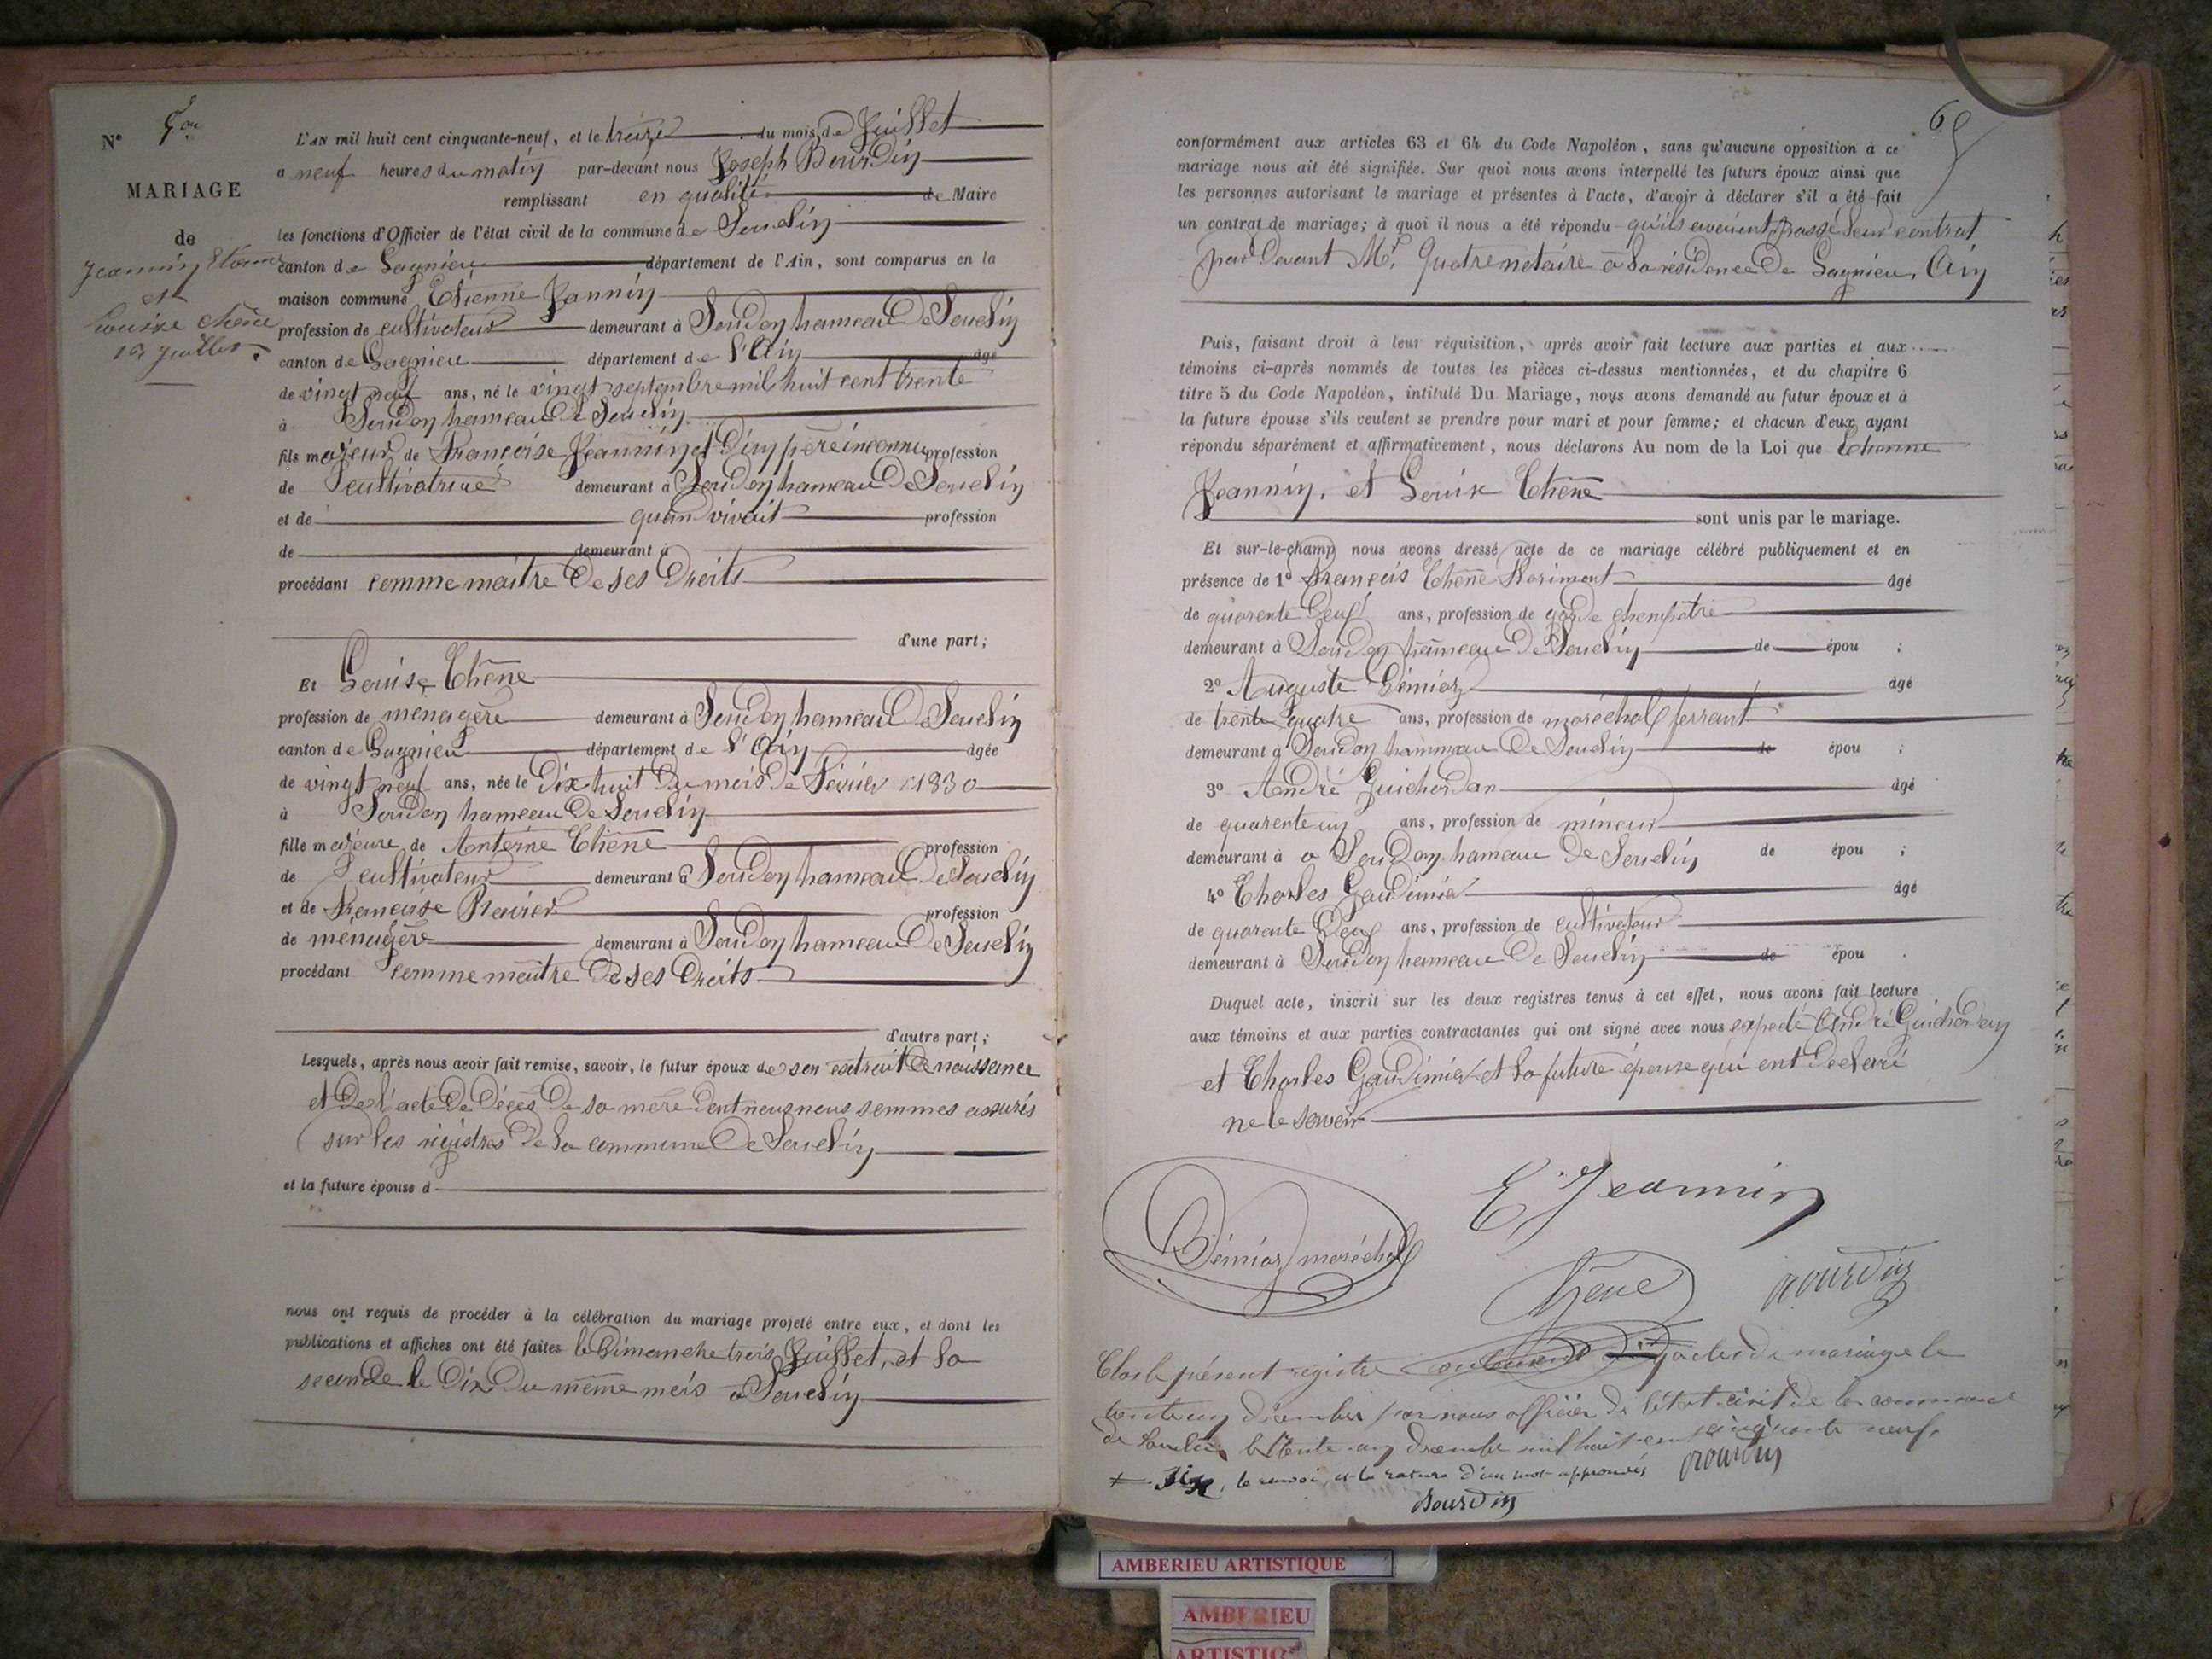 N°
MARIAGE
de
Jeannin Etienne
et
Louise Chêne
13 Juillet.
L'AN mil huit cent cinquante-neuf, et le treize du mois de Juillet
à neuf heures du matin par-devant nous Joseph Bourdin
remplissant en qualité de Maire
les fonctions d'Officier de l'état civil de la commune de Souclin
canton de Lagnieu département de l'Ain, sont comparus en la
maison commune Etienne Jannin
profession de cultivateur demeurant à Soudon hameau de Souclin
canton de Lagnieu département de l'Ain âgé
de vingt neuf ans, né le vingt septembre mil huit cent trente
à Soudon hameau de Souclin
fils majeur de Françoise Jeannin et d'un père inconnu profession
de cultivatrice demeurant à Soudon hameau de Souclin
et de quand vivait profession
de demeurant à
procédant comme maitre de ses droits
d'une part;
Et Louise Chêne
profession de menagère demeurant à Soudon hameau de Souclin
canton de Lagnieu département de l'Ain agée
de vingt neuf ans, née le dix huit du mois de Février 1830
à Soudon hameau de Souclin
fille majeure de Antoine Chêne profession
de cultivateur demeurant à Soudon hameau de Souclin
et de Françoise Ravier profession
de menagère demeurant à Soudon hameau de Souclin
procédant comme maitre de ses droits
d'autre part;
Lesquels, après nous avoir fait remise, savoir, le futur époux de son extrait de naissance
et de l'acte de décès de sa mère dont nous nous sommes assurés
sur les registres de la commune de Souclin
et la future épouse d
nous ont requis de procéder à la célébration du mariage projeté entre eux, et dont les
publications et affiches ont été faites le Dimanche trois Juillet, et la
seconde le Dix du même mois a Souclin
conformément aux articles 63 et 64 du Code Napoléon, sans qu'aucune opposition à ce
mariage nous ait été signifiée. Sur quoi nous avons interpellé les futurs époux ainsi que
les personnes autorisant le mariage et présentes à l'acte, d'avoir à déclarer s'il a été fait
un contrat de mariage; à quoi il nous a été répondu qu'ils avaient passé leur contrat
par devant Mt. Quatre notaire à la résidence de Lagnieu, Ain
Puis, faisant droit à leur réquisition, après avoir fait lecture aux parties et aux
témoins ci-après nommés de toutes les pièces ci-dessus mentionnées, et du chapitre 6
titre 5 du Code Napoléon, intitulé Du Mariage, nous avons demandé au futur époux et à
la future épouse s'ils veulent se prendre pour mari et pour femme; et chacun d'eux ayant
répondu séparément et affirmativement, nous déclarons Au nom de la Loi que Etienne
Jeannin, et Louise Chêne
sont unis par le mariage.
Et sur-le-champ nous avons dressé acte de ce mariage célébré publiquement et en
présence de 1° François Chêne Florimont âgé
de quarente deux ans, profession de garde champatre
demeurant à Soudon hameau de Souclin de épou ;
2° Auguste Démiaz âgé
de trente quatre ans, profession de maréchal ferrant
demeurant à Soudon hammeau de Souclin de épou ;
3° André Guichordan âgé
de quarente un ans, profession de mineur
demeurant à a Soudon hameau de Souclin de épou ;
4° Charles Gaudimier âgé
de quarente deux ans, profession de cultivateur
demeurant à Soudon hameau de Souclin de épou .
Duquel acte, inscrit sur les deux registres tenus à cet effet, nous avons fait lecture
aux témoins et aux parties contractantes qui ont signé avec nous exepté André Guichordan
et Charles Gaudimier et la future épouse qui ont declaré
ne le savoir
E. Jeannin
Démiaz maréchal
Chêne
Bourdin
Clos le présent registre actes de mariage le
trente un décembre par nous officier de l'état civil de la commune
de Souclin le trente un décembre mil huit cent cinquante neuf.
+ Six, le renvoi, et la rature d'un mot approuvés Bourdin
Bourdin
AMBERIEU ARTISTIQUE
AMBERIEU
ARTISTIQUE